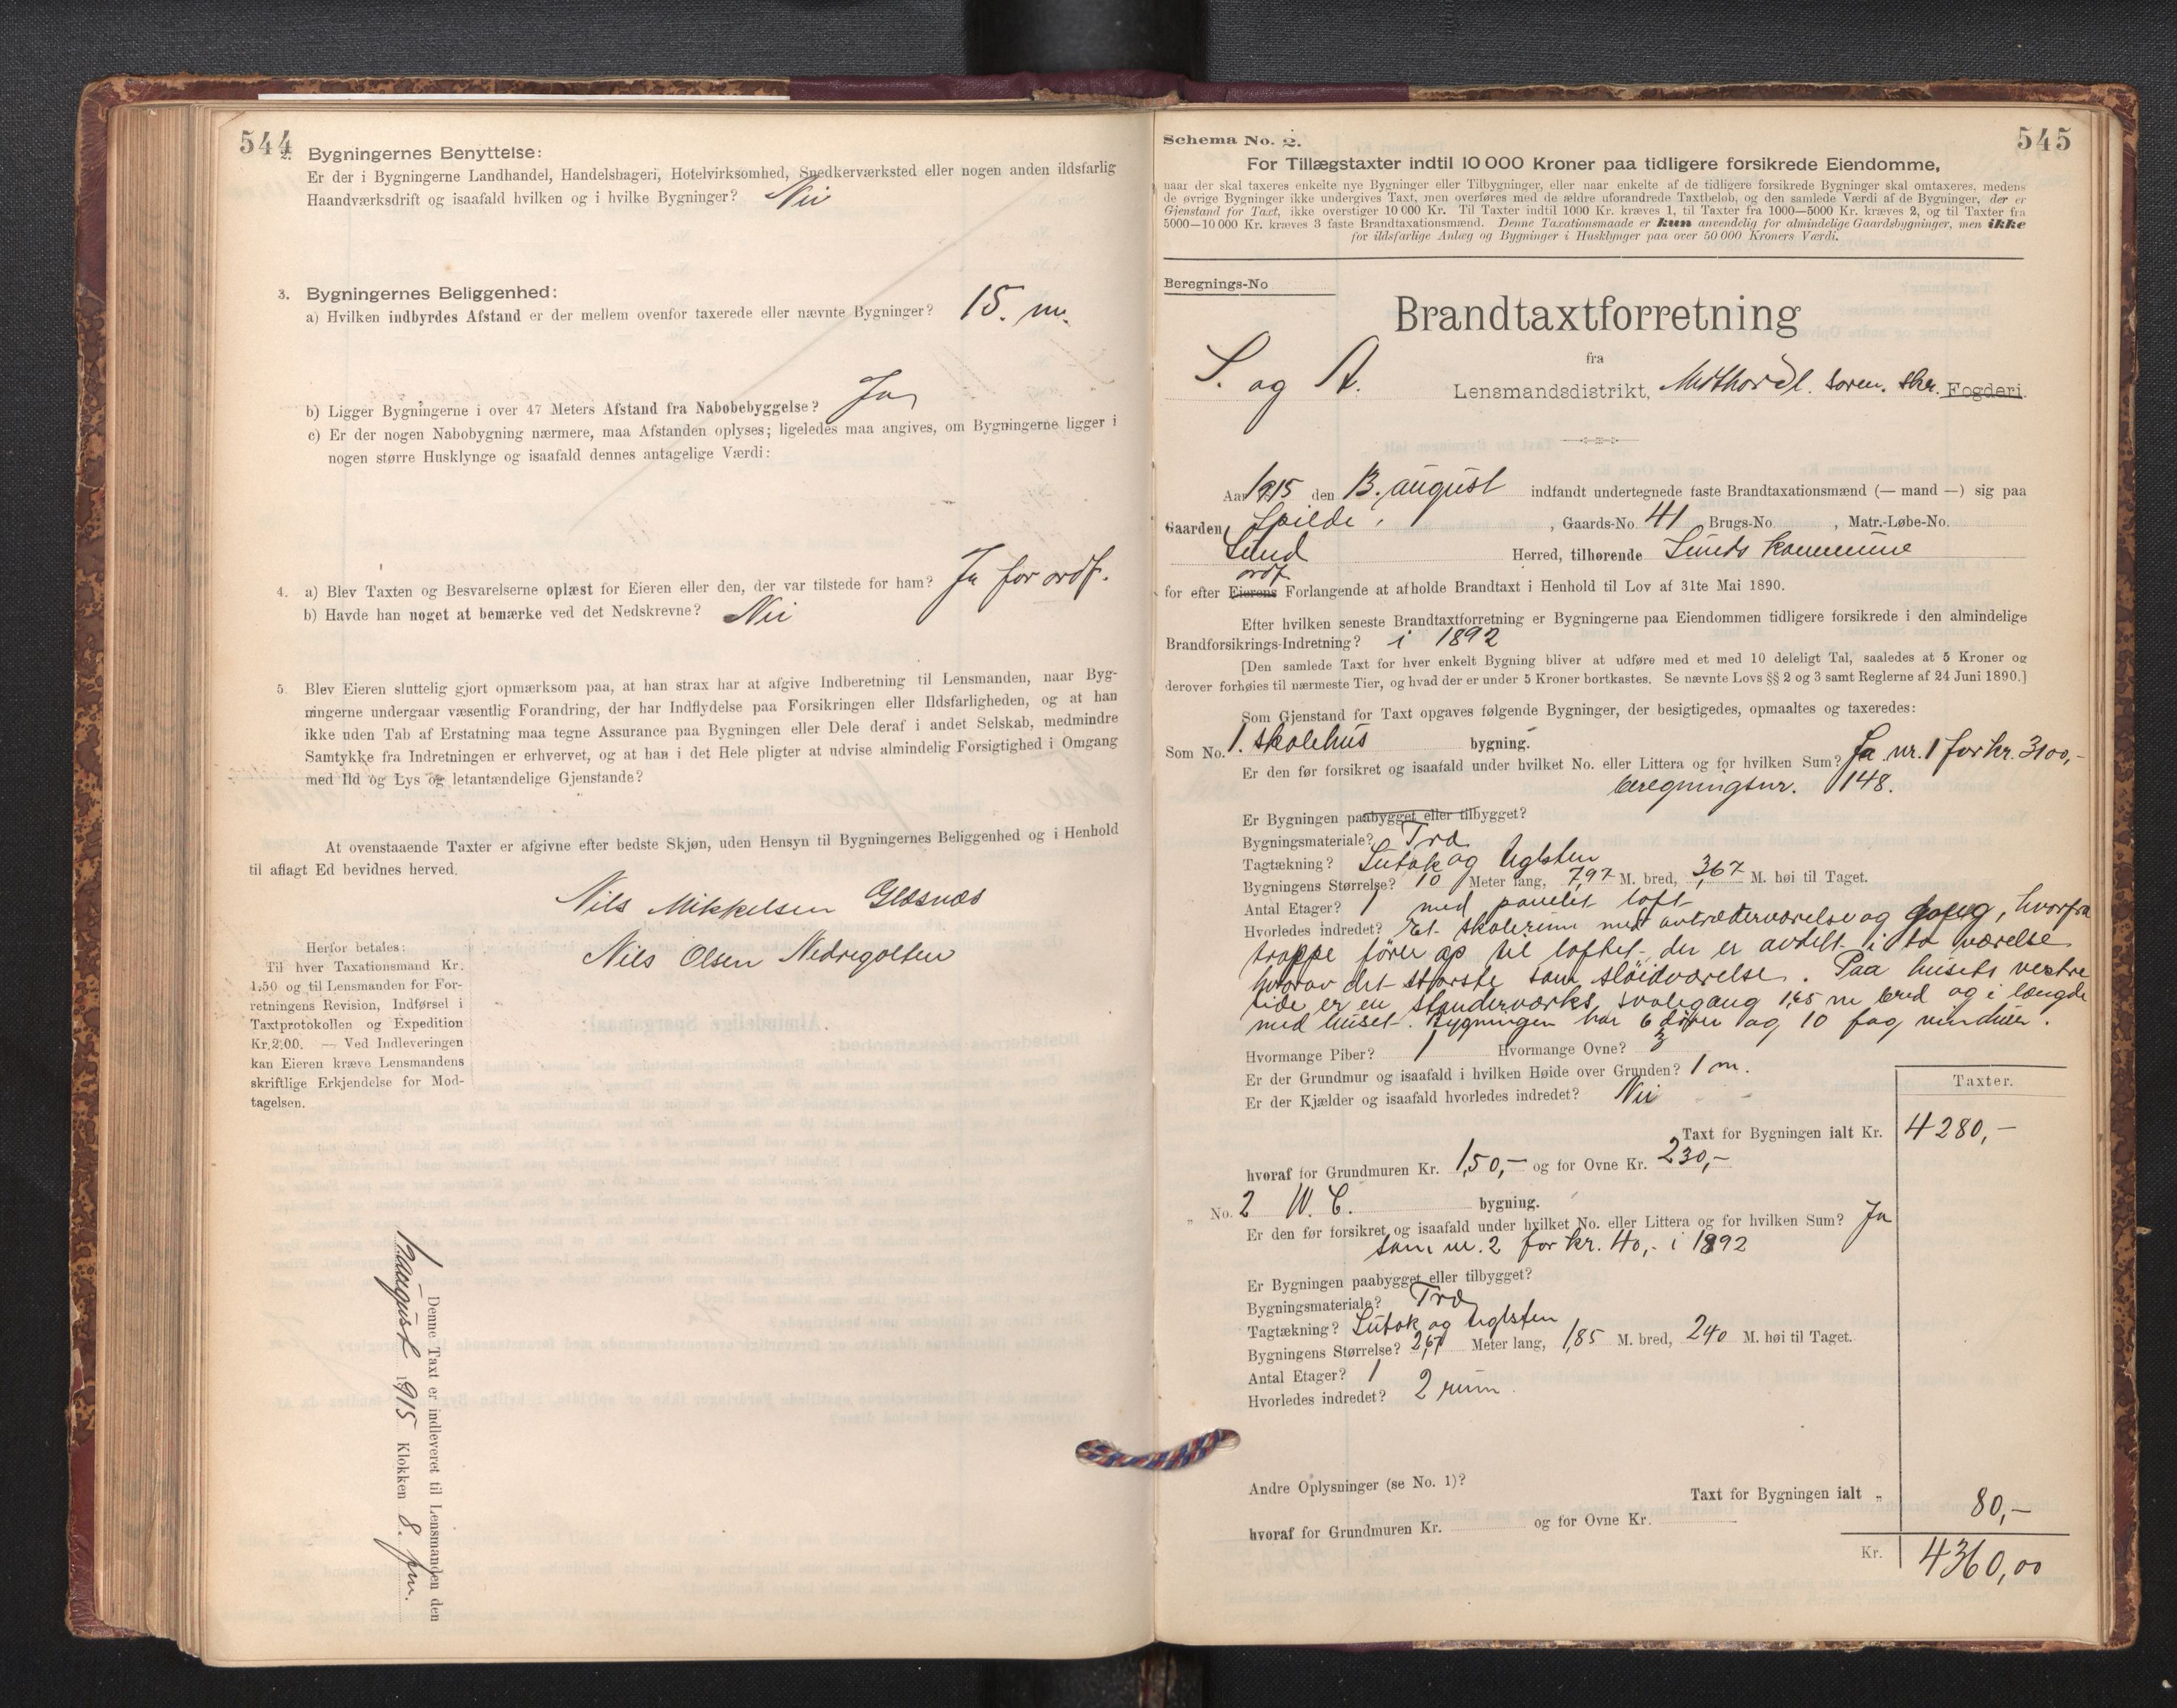 544
2. Bygningernes Benyttelse:
Er der i Bygningerne Landhandel, Handelsbageri, Hotelvirksomhed, Snedkerværksted eller nogen anden ildsfarlig
Haandværksdrift og isaafald hvilken og i hvilke Bygninger? Nei
3. Bygningernes Beliggenhed:
a) Hvilken indbyrdes Afstand er der mellem ovenfor taxerede eller nævnte Bygninger? 15. m.
b) Ligger Bygningerne i over 47 Meters Afstand fra Nabobebyggelse? Ja
c) Er der nogen Nabobygning nærmere, maa Afstanden oplyses; ligeledes maa angives, om Bygningerne ligger i
nogen større Husklynge og isaafald dennes antagelige Værdi:
4. a) Blev Taxten og Besvarelserne oplæst for Eieren eller den, der var tilstede for ham? Ja for ordf.
b) Havde han noget at bemærke ved det Nedskrevne? Nei
5. Blev Eieren sluttelig gjort opmærksom paa, at han strax har at afgive Indberetning til Lensmanden, naar Byg-
ningerne undergaar væsentlig Forandring, der har Indflydelse paa Forsikringen eller Ildsfarligheden, og at han
ikke uden Tab af Erstatning maa tegne Assurance paa Bygningen eller Dele deraf i andet Selskab, medmindre
Samtykke fra Indretningen er erhvervet, og at han i det Hele pligter at udvise almindelig Forsigtighed i Omgang
med Ild og Lys og letantændelige Gjenstande?
At ovenstaaende Taxter er afgivne efter bedste Skjøn, uden Hensyn til Bygningernes Beliggenhed og i Henhold
til aflagt Ed bevidnes herved.
Nils Mikkelsen Glesnæs
Nils Olsen
Herfor betales:
Til hver Taxationsmand Kr.
1.50 og til Lensmanden for For-
retningens Revision, Indførsel i
Taxtprotokollen og Expedition
Kr. 2.00. — Ved Indleveringen
kan Eieren kræve Lensmandens
skriftlige Erkjendelse for Mod-
tagelsen.
Denne Taxt er indleveret til Lensmanden den
august 1915 Klokken 8. fm.
545
Schema No. 2.
For Tillægstaxter indtil 10 000 Kroner paa tidligere forsikrede Eiendomme,
naar der skal taxeres enkelte nye Bygninger eller Tilbygninger, eller naar enkelte af de tidligere forsikrede Bygninger skal omtaxeres, medens
de øvrige Bygninger ikke undergives Taxt, men overføres med de ældre uforandrede Taxtbeløb, og den samlede Værdi af de Bygninger, der er
Gjenstand for Taxt, ikke overstiger 10 000 Kr. Til Taxter indtil 1000 Kr. kræves 1, til Taxter fra 1000—5000 Kr. kræves 2, og til Taxter fra
5000—10 000 Kr. kræves 3 faste Brandtaxationsmænd. Denne Taxationsmaade er kun anvendelig for almindelige Gaardsbygninger, men ikke
for ildsfarlige Anlæg og Bygninger i Husklynger paa over 50 000 Kroners Værdi.
Beregnings-No
Brandtaxtforretning
fra
S. og A. Lensmandsdistrikt, Midthordl. soren. skr. Fogderi.
Aar 1915 den 13. august indfandt undertegnede faste Brandtaxationsmænd (— mand —) sig paa
Gaarden Spilde, , Gaards-No. 41 Brugs-No. , Matr.-Løbe-No.
Sund Herred, tilhørende Sunds kommune
ordf
for efter Eierens Forlangende at afholde Brandtaxt i Henhold til Lov af 31te Mai 1890.
Efter hvilken seneste Brandtaxtforretning er Bygningerne paa Eiendommen tidligere forsikrede i den almindelige
Brandforsikrings-Indretning? i 1892
[Den samlede Taxt for hver enkelt Bygning bliver at udføre med et med 10 deleligt Tal, saaledes at 5 Kroner og
derover forhøies til nærmeste Tier, og hvad der er under 5 Kroner bortkastes. Se nævnte Lovs §§ 2 og 3 samt Reglerne af 24 Juni 1890.]
Som Gjenstand for Taxt opgaves følgende Bygninger, der besigtigedes, opmaaltes og taxeredes:
Som No. 1. skolehus bygning.
Er den før forsikret og isaafald under hvilket No. eller Littera og for hvilken Sum? Ja nr. 1 for kr. 3100,-
beregningsnr. 148.
Er Bygningen paabygget eller tilbygget?
Bygningsmateriale? Træ
Tagtækning? Sutak og teglsten
Bygningens Størrelse? 10 Meter lang, 7,97 M. bred, 3,67 M. høi til Taget.
Antal Etager? 1 med panelet loft
Hvorledes indredet? Et skolerum med værelse og gang, hvorfra
trappe fører op til loftet, der er avdelt i to værelse
hvorav det største som sløidværelse. Paa husets vestre
side er en standerværks svalegang 1,65 m bred og i længde
med huset. Bygningen har 6 dører og 10 fag vinduer.
Hvormange Piber? 1 Hvormange Ovne? 3
Er der Grundmur og isaafald i hvilken Høide over Grunden? 1 m.
Er der Kjælder og isaafald hvorledes indredet? Nei
Taxter.
Taxt for Bygningen ialt Kr. 4280,-
hvoraf for Grundmuren Kr. 150,- og for Ovne Kr. 230,-
„ No. 2 W. C. bygning.
Er den før forsikret og isaafald under hvilket No. eller Littera og for hvilken Sum? Ja
som nr. 2 for kr. 40,- i 1892
Er Bygningen paabygget eller tilbygget?
Bygningsmateriale? Træ
Tagtækning? Sutak og teglsten
Bygningens Størrelse? 2,67 Meter lang, 1,85 M. bred, 240 M. høi til Taget.
Antal Etager? 1
Hvorledes indredet? 2 rum.
Andre Oplysninger (se No. 1)?
Taxt for Bygningen ialt „ 80,-
hvoraf for Grundmuren Kr. og for Ovne Kr.
Kr. 4360,00